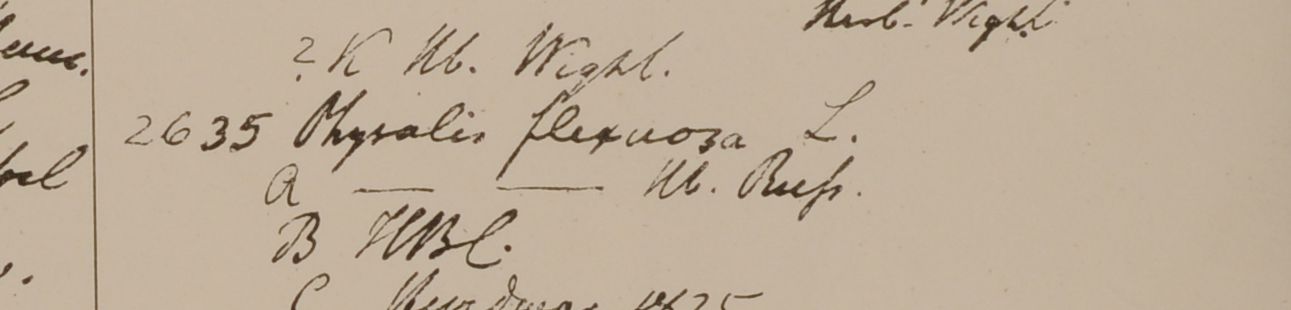 Herb. Wight
? K Hb. Wight.
2635 Physalis flexuosa L.
a — — Hb. Russ.
B HBC.
C 1825